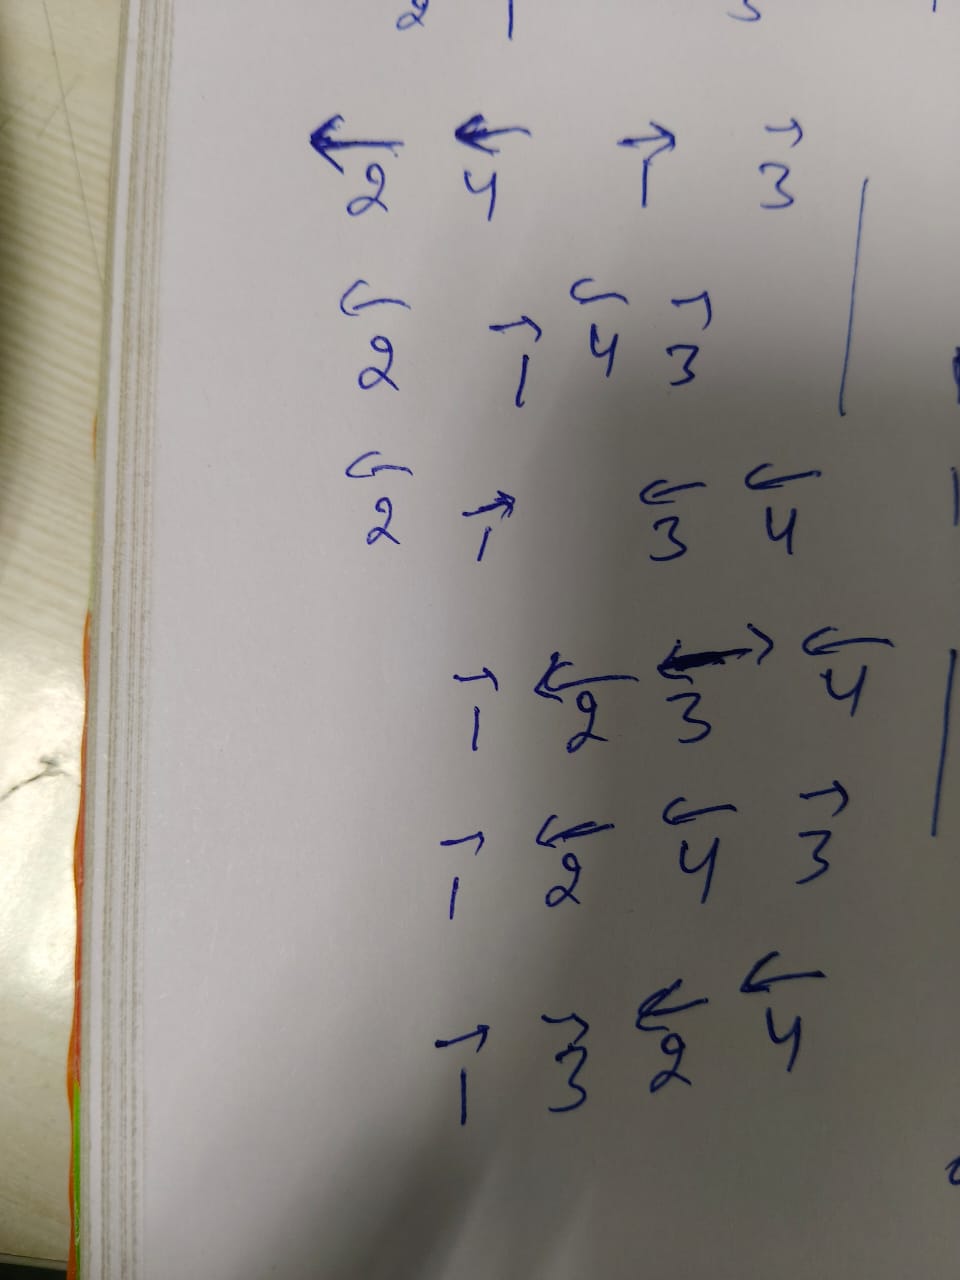 2 1 3
← ← → →
2 4 1 3
← → ← →
2 1 4 3
← → ← ←
2 1 3 4
→ ← → ←
1 2 3 4
→ ← ← →
1 2 4 3
→ → ← ←
1 3 2 4